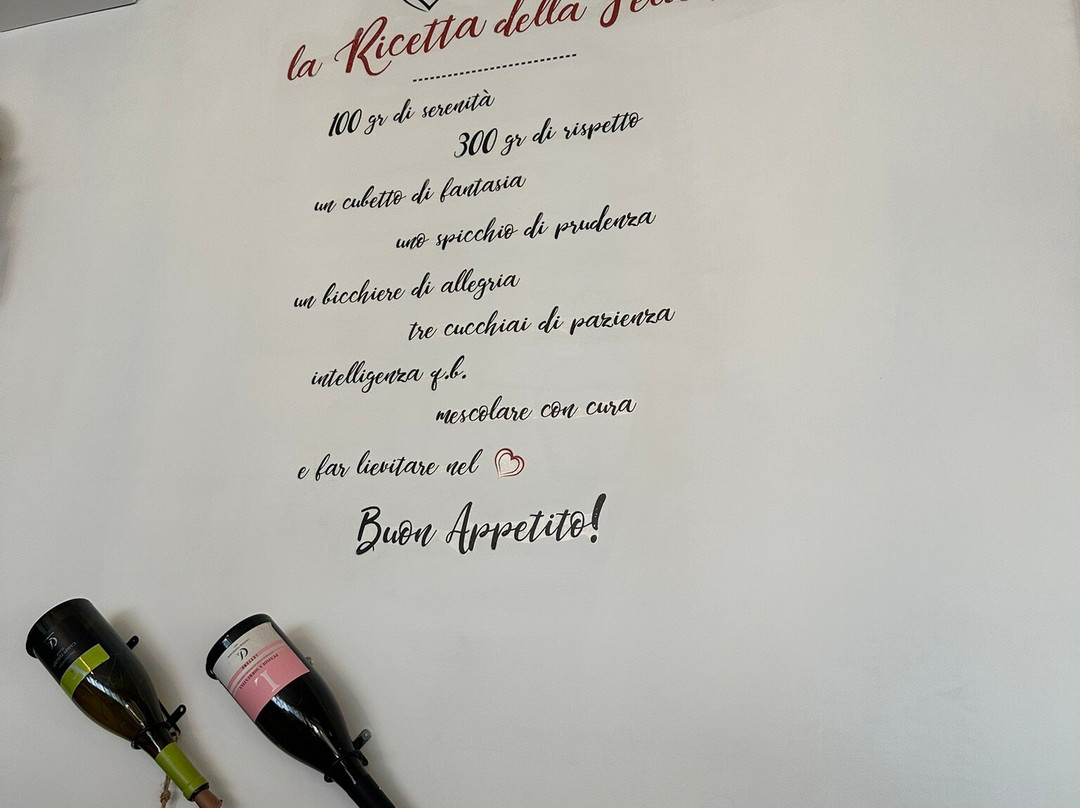 la Ricetta della
100 gr di serenità
300 gr di rispetto
un cubetto di fantasia
uno spicchio di prudenza
un bicchiere di allegria
tre cucchiai di pazienza
intelligenza q.b.
mescolare con cura
e far lievitare nel
Buon Appetito!
LETTERE
L